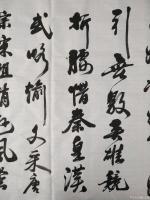 引無數英雄競
折腰惜秦皇漢
武略輸文采唐
宗宋祖稍遜風